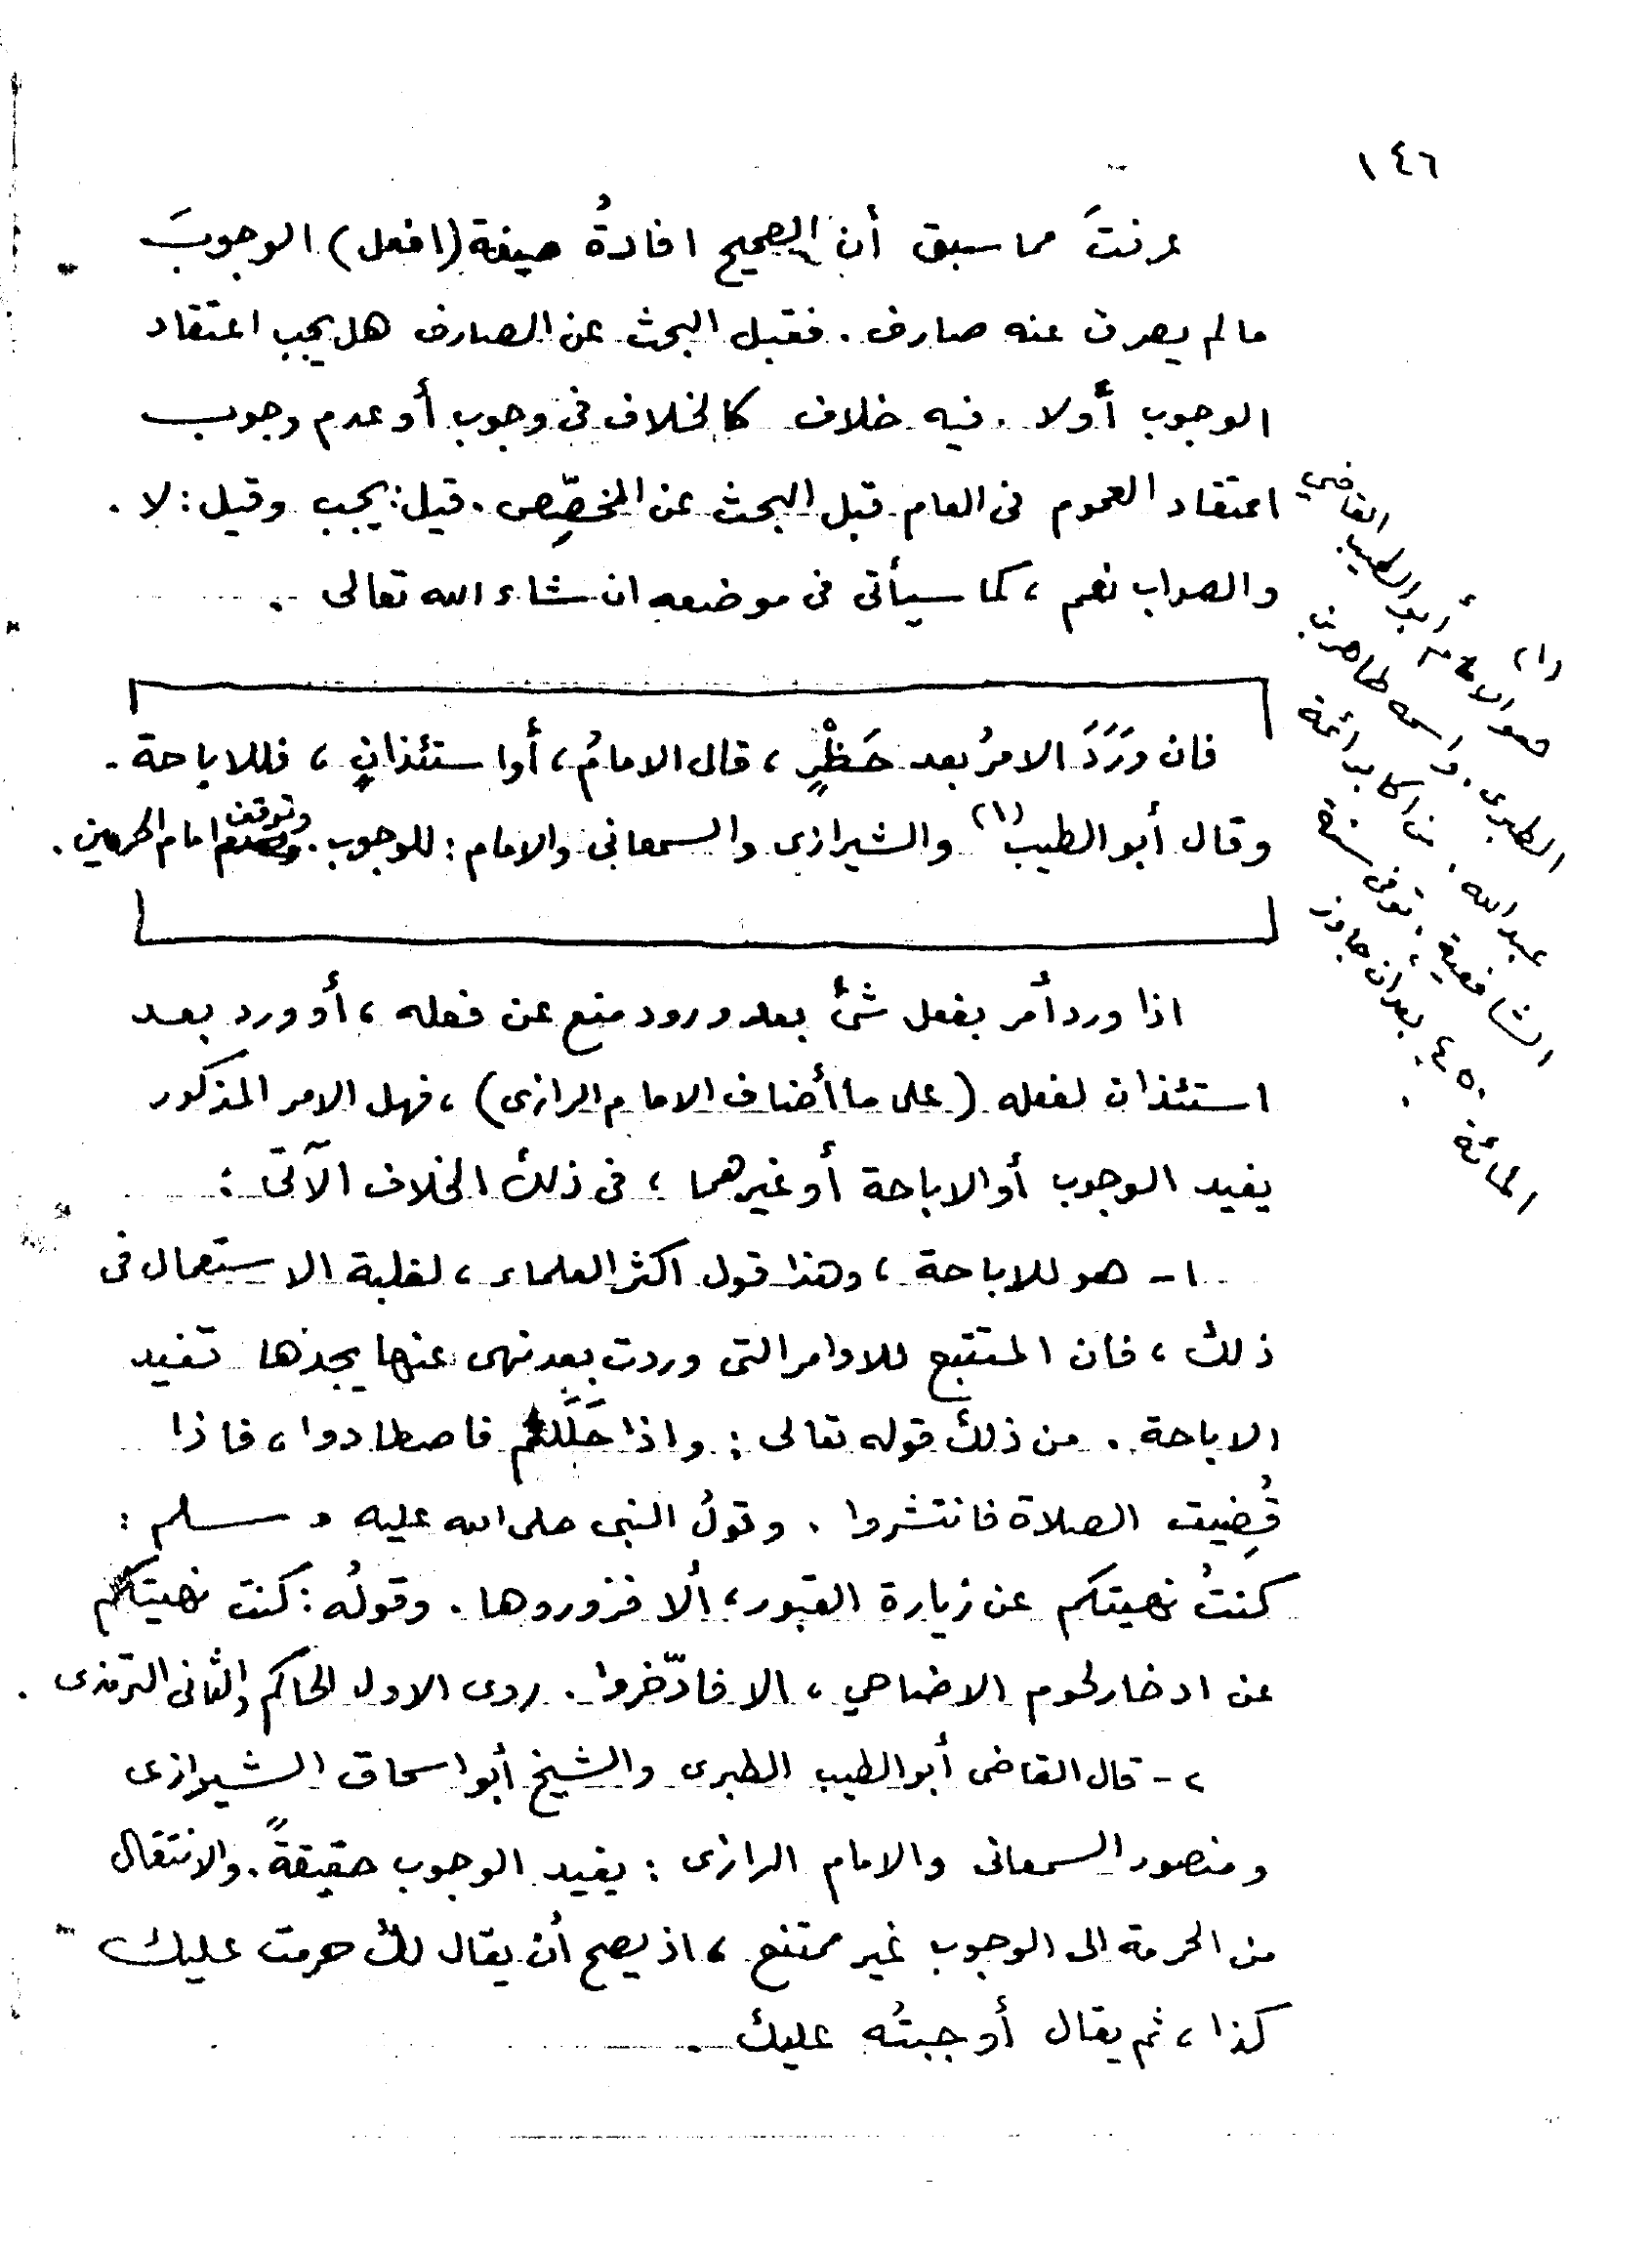 ١٤٦
عرفتَ مما سبق أن الصحيح افادةُ صيغة (افعل) الوجوبَ
مالم يصرف عنه صارف . فقبل البحث عن الصارف هل يجب اعتقاد
الوجوب أولا . فيه خلاف كالخلاف فى وجوب أو عدم وجوب
اعتقاد العموم فى العام قبل البحث عن المخصِّص . قيل: يجب وقيل: لا .
والصواب نعم ، كما سيأتى فى موضعه ان شاء الله تعالى .
فان وَرَدَ الامرُ بعد حَظْرٍ ، قال الامامُ ، أو استئذانٍ ، فللاباحة .
وقال أبو الطيب (١) والشيرازى والسمعانى والامام : للوجوب . وتوقف امام الحرمين .
اذا ورد أمر بفعل شئ بعد ورود منع عن فعله ، أو ورد بعد
استئذان لفعله (على ما أضاف الامام الرازى) ، فهل الامر المذكور
يفيد الوجوب أو الاباحة أو غيرهما ، فى ذلك الخلاف الآتى :
١- هو للاباحة ، وهذا قول اكثر العلماء ، لغلبة الاستعمال فى
ذلك ، فان المتتبع للاوامر التى وردت بعد نهى عنها يجدها تفيد
الاباحة . من ذلك قوله تعالى : واذا حَلَلْتم فاصطادوا ، فاذا
قُضِيت الصلاة فانتشروا . وقولُ النبى صلى الله عليه وسلم :
كنتُ نهيتكم عن زيارة القبور ، ألا فزوروها . وقولُه : كنت نهيتكم
عن ادخار لحوم الاضاحي ، الا فادّخروا . روى الاول الحاكم والثانى الترمذى .
٢- قال القاضى أبو الطيب الطبرى والشيخ أبو اسحاق الشيرازى
ومنصور السمعانى والامام الرازى : يفيد الوجوب حقيقةً . والانتقال
من الحرمة الى الوجوب غير ممتنع ، اذ يصح أن يقال لك حرمت عليك
كذا ، ثم يقال أوجبتُه عليك .
(١) هو الامام أبو الطيب القاضي
الطبرى . واسمه طاهر بن
عبد الله . من اكابر ائمة
الشافعية ، توفى سنة
٤٥٠ بعد ان جاوز
المائة .